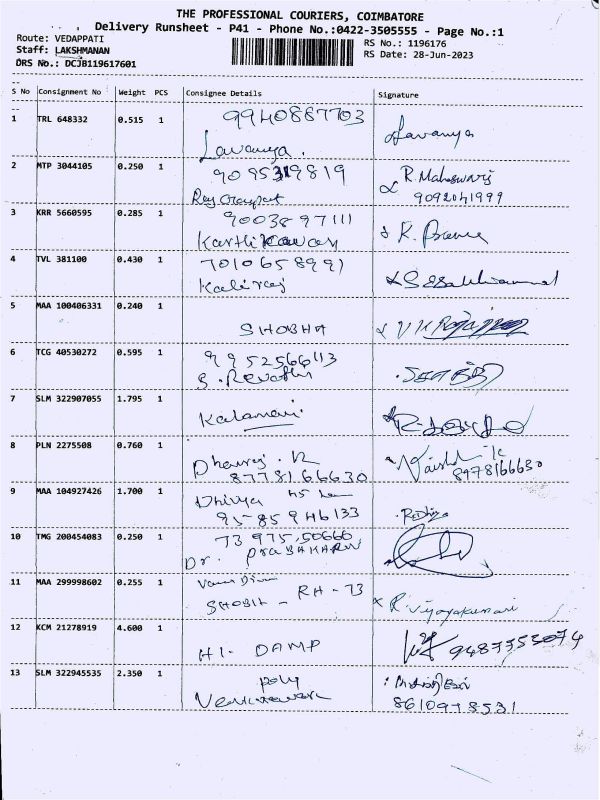 THE PROFESSIONAL COURIERS, COIMBATORE
Delivery Runsheet - P41 - Phone No.:0422-3505555 - Page No.:1
Route: VEDAPPATI
RS No.: 1196176
Staff: LAKSHMANAN
RS Date: 28-Jun-2023
DRS No.: DCJB119617601
S No Consignment No Weight PCS Consignee Details Signature
1 TRL 648332 0.515 1 9940887703
Lavanya. Lavanya
2 MTP 3044105 0.250 1 9095319819 R. Maheswari
9092041999
3 KRR 5660595 0.285 1 9003897111
Karthikawan
4 TVL 381100 0.430 1 7010658991
Kaliraj
5 MAA 100406331 0.240 1
SHOBHA
6 TCG 40530272 0.595 1 9952566113
S. Revathi
7 SLM 322907055 1.795 1
Kalamani
8 PLN 2275508 0.760 1
Dhanraj. K
8778166630 8978166630
9 MAA 104927426 1.700 1 Dhivya
9585946133
10 TMG 200454083 0.250 1 73975,50666
Dr. PRABAKARAN
11 MAA 299998602 0.255 1
SHOBIL - RH - 73 R. Vijayakumari
12 KCM 21278919 4.600 1
HI- DAMP 9487353074
13 SLM 322945535 2.350 1 Poly
8610978531